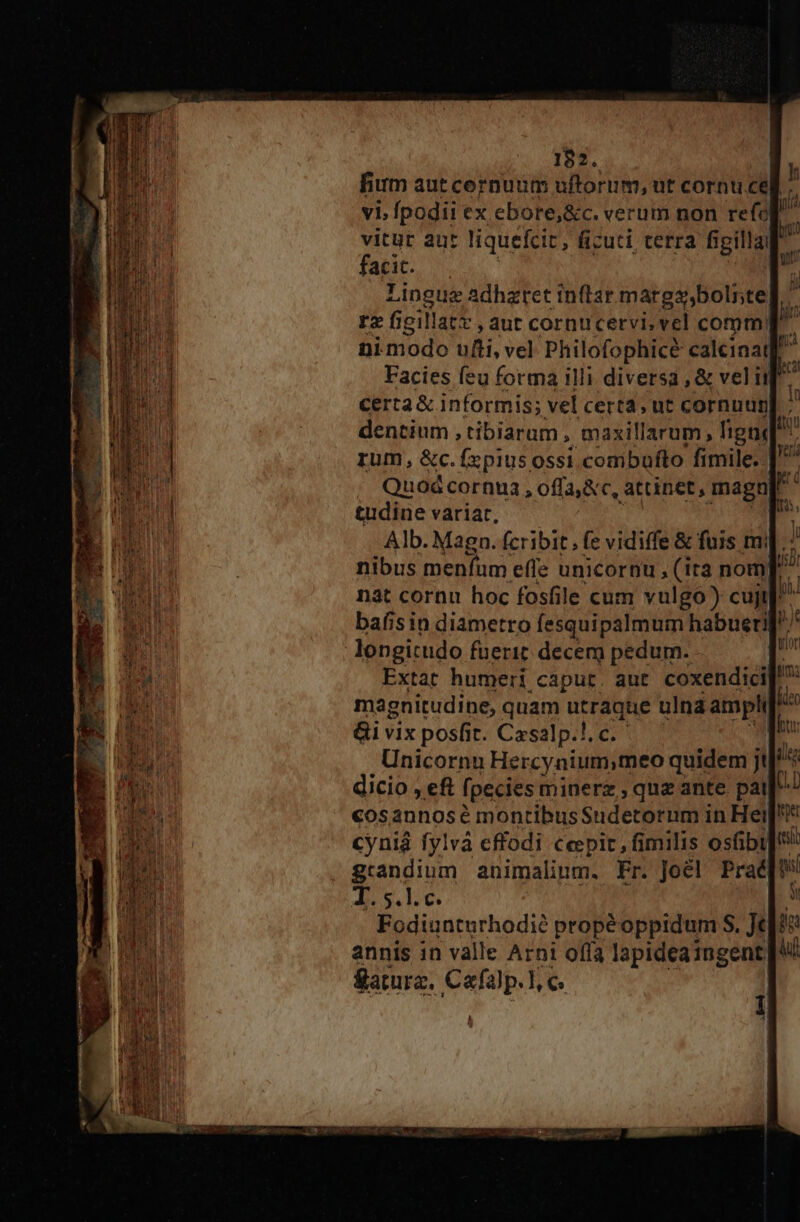 182.
ſium aut cornuum uſtorum, ut cornu ce
vi, ſpodii ex ebore, &c. verum non reſo
vitur aut liqueſcit, ſicuti terra ſigilla
facit.
Linguæ adhæret inſtar margæ, boli, te
ræ ſigillatæ, aut cornu cervi, vel comm
ni modo uſti, vel Philoſophicè calcinat
Facies ſeu forma illi diversa, & vel i
certa & informis; vel certa, ut cornuu
dentium, tibiarum, maxillarum, ligno
rum, &c. ſæpius ossi combuſto ſimile.
Quod cornua, oſſa, &c, attinet, magn
tudine variat,
Alb. Magn. ſcribit, ſe vidiſſe & ſuis m
nibus menſum eſſe unicornu, (ita nom
nat cornu hoc fosſile cum vulgo) cuj
baſis in diametro ſesquipalmum habueri
longitudo fuerit decem pedum.
Extat humeri caput aut coxendici
magnitudine, quam utraque ulna ampl
&i vix posſit. Cæsalp. l. c.
Unicornu Hercynium, meo quidem j
dicio, eſt ſpecies mineræ, quæ ante pa
cos annos è montibus Sudetorum in He
cyniâ ſylvâ effodi cœpit, ſimilis osſib
grandium animalium. Fr. Joël Pra
T. 5. l. c.
Fodiuntur hodiè propè oppidum S. J
annis in valle Arni oſſa lapidea ingent
ſtaturæ. Cæſalp. l, c.